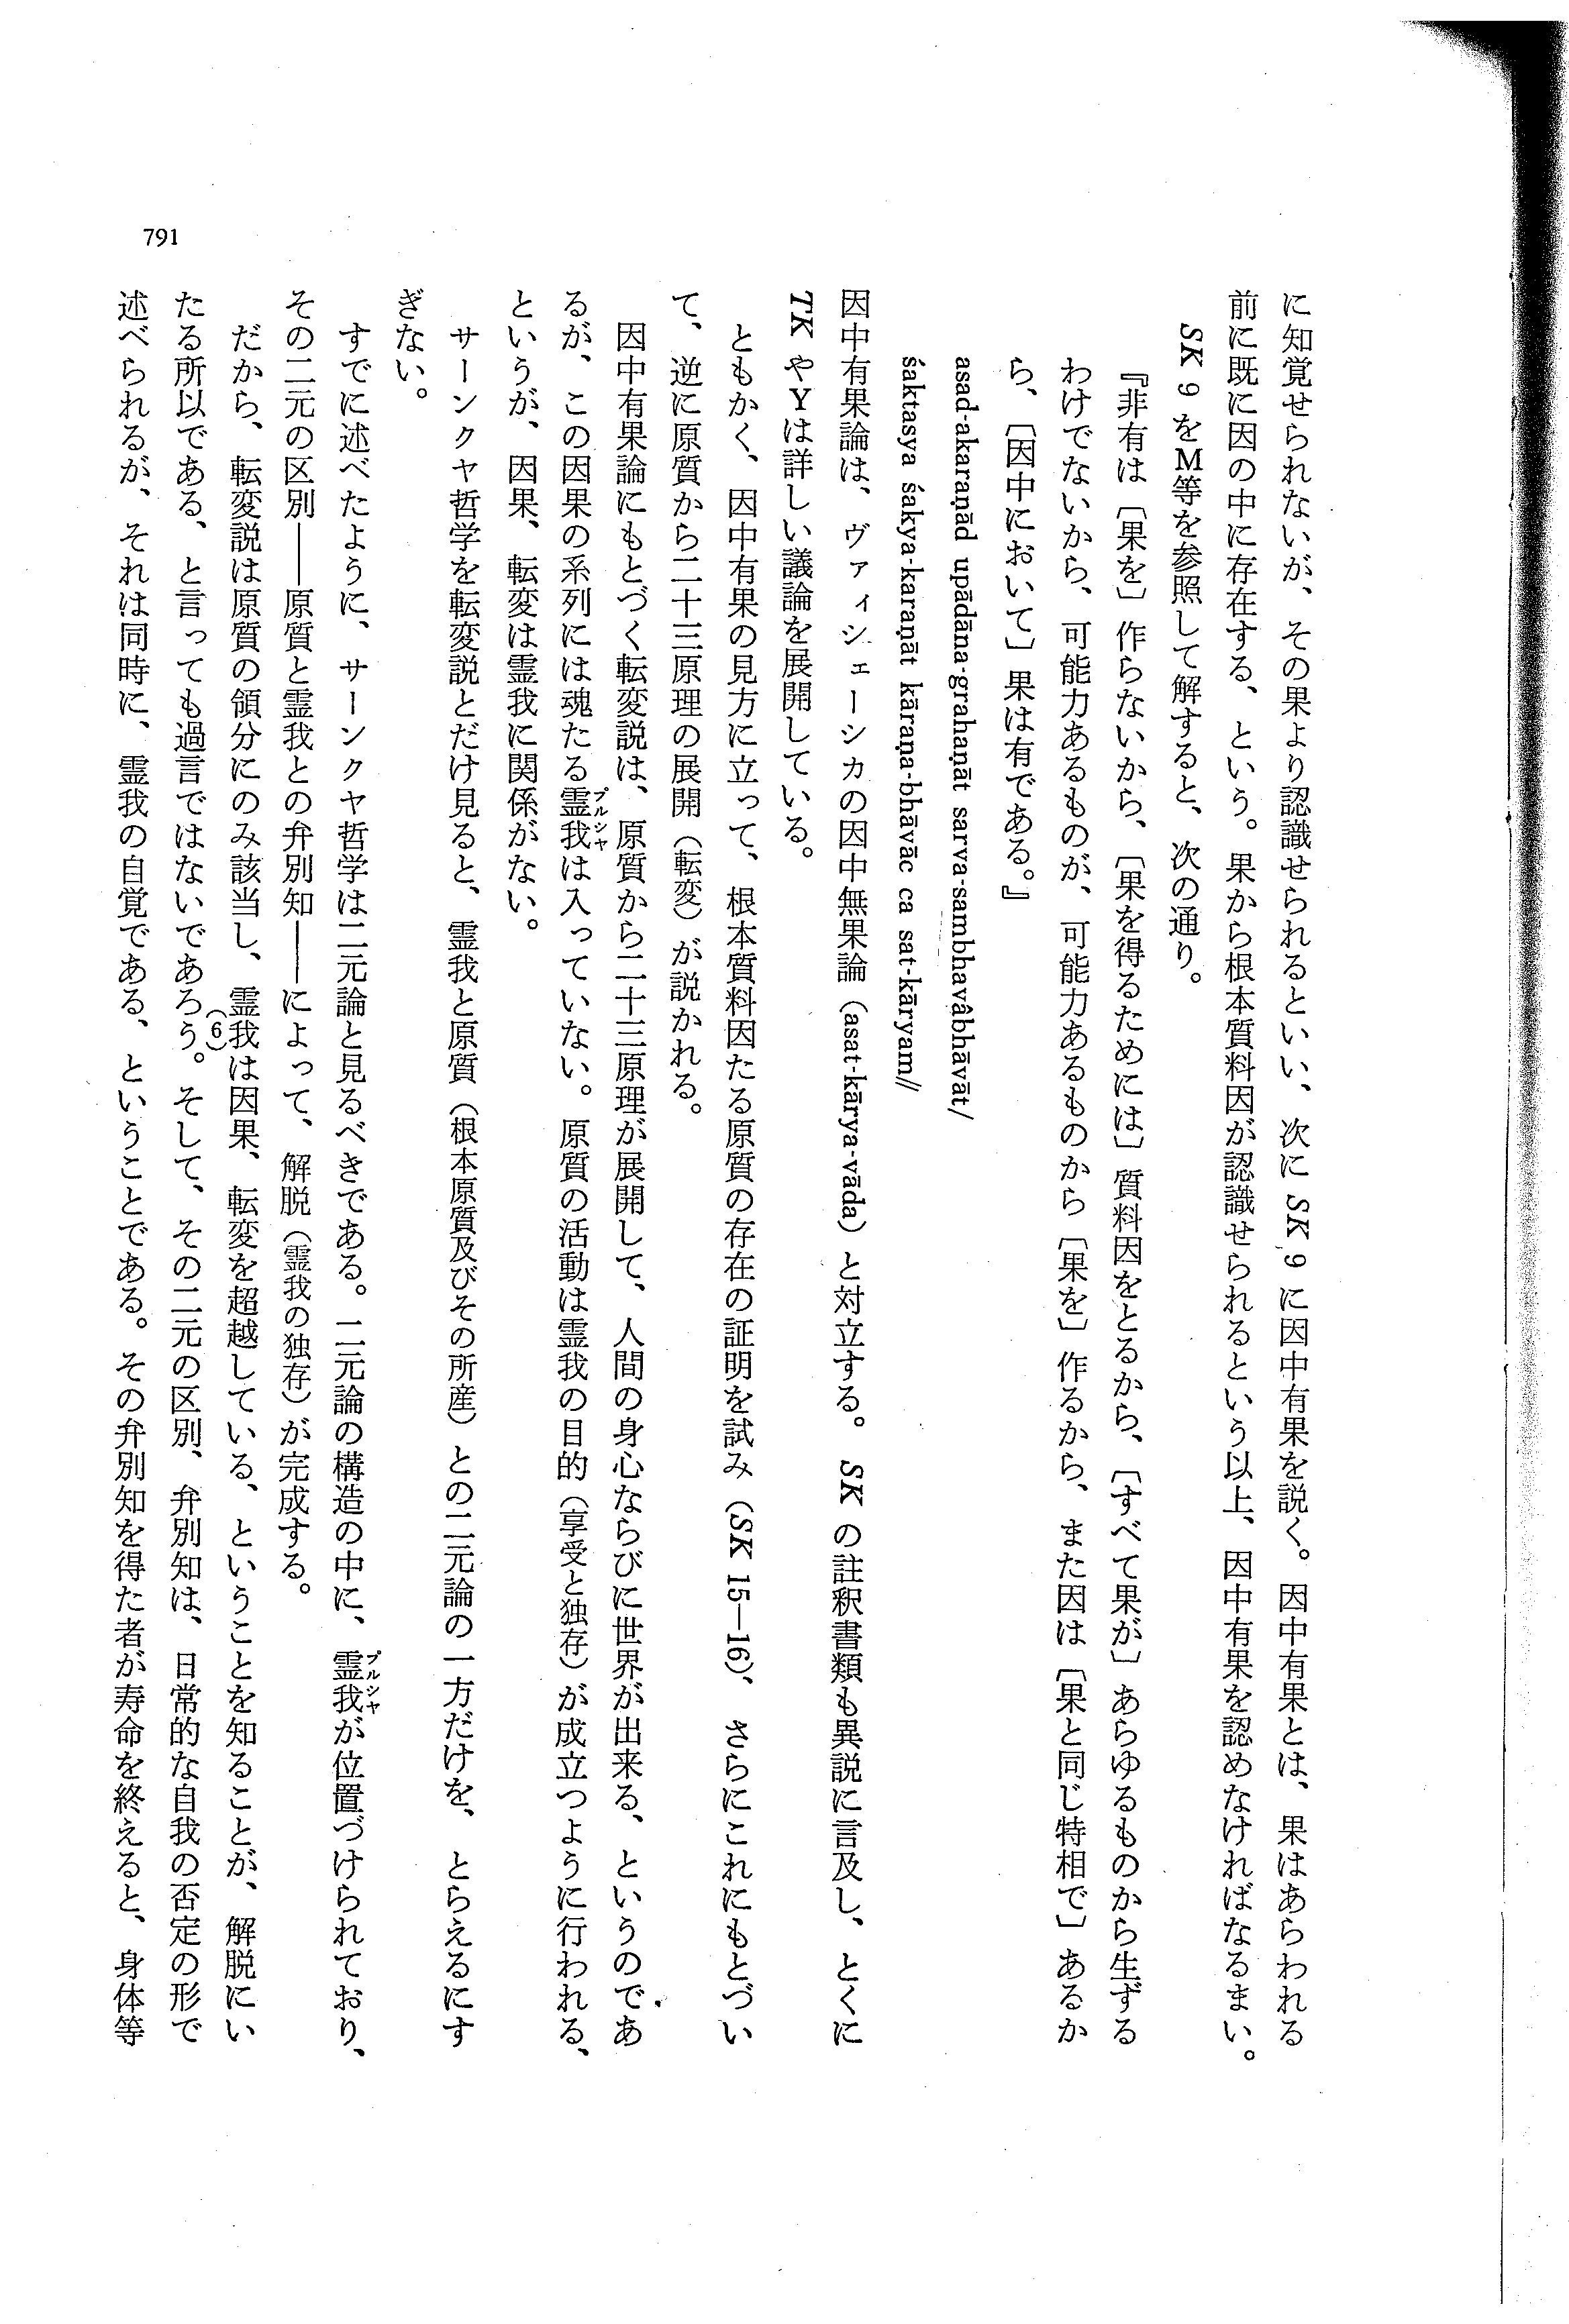 に知覚せられないが、その果より認識せられるといい、次に SK 9 に因中有果を説く。因中有果とは、果はあらわれる
前に既に因の中に存在する、という。果から根本質料因が認識せられるという以上、因中有果を認めなければなるまい。
SK 9 をM等を参照して解すると、次の通り。
『非有は〔果を〕作らないから、〔果を得るためには〕質料因をとるから、〔すべて果が〕あらゆるものから生ずる
わけでないから、可能力あるものが、可能力あるものから〔果を〕作るから、また因は〔果と同じ特相で〕あるか
ら、〔因中において〕果は有である。』
asad-akaraṇād upādāna-grahaṇāt sarva-sambhavâbhāvāt/
śaktasya śakya-karaṇāt kāraṇa-bhāvāc ca sat-kāryam//
因中有果論は、ヴァィシェーシカの因中無果論（asat-kārya-vāda）と対立する。SK の註釈書類も異説に言及し、とくに
TK やYは詳しい議論を展開している。
ともかく、因中有果の見方に立って、根本質料因たる原質の存在の証明を試み（SK 15—16）、さらにこれにもとづい
て、逆に原質から二十三原理の展開（転変）が説かれる。
因中有果論にもとづく転変説は、原質から二十三原理が展開して、人間の身心ならびに世界が出来る、というのであ
るが、この因果の系列には魂たる霊我プルシャは入っていない。原質の活動は霊我の目的（享受と独存）が成立つように行われる、
というが、因果、転変は霊我に関係がない。
サーンクャ哲学を転変説とだけ見ると、霊我と原質（根本原質及びその所産）との二元論の一方だけを、とらえるにす
ぎない。
すでに述べたように、サーンクャ哲学は二元論と見るべきである。二元論の構造の中に、霊我プルシャが位置づけられており、
その二元の区別――原質と霊我との弁別知――によって、解脱（霊我の独存）が完成する。
だから、転変説は原質の領分にのみ該当し、霊我は因果、転変を超越している、ということを知ることが、解脱にい
たる所以である、と言っても過言ではないであろう(6)。そして、その二元の区別、弁別知は、日常的な自我の否定の形で
述べられるが、それは同時に、霊我の自覚である、ということである。その弁別知を得た者が寿命を終えると、身体等
791